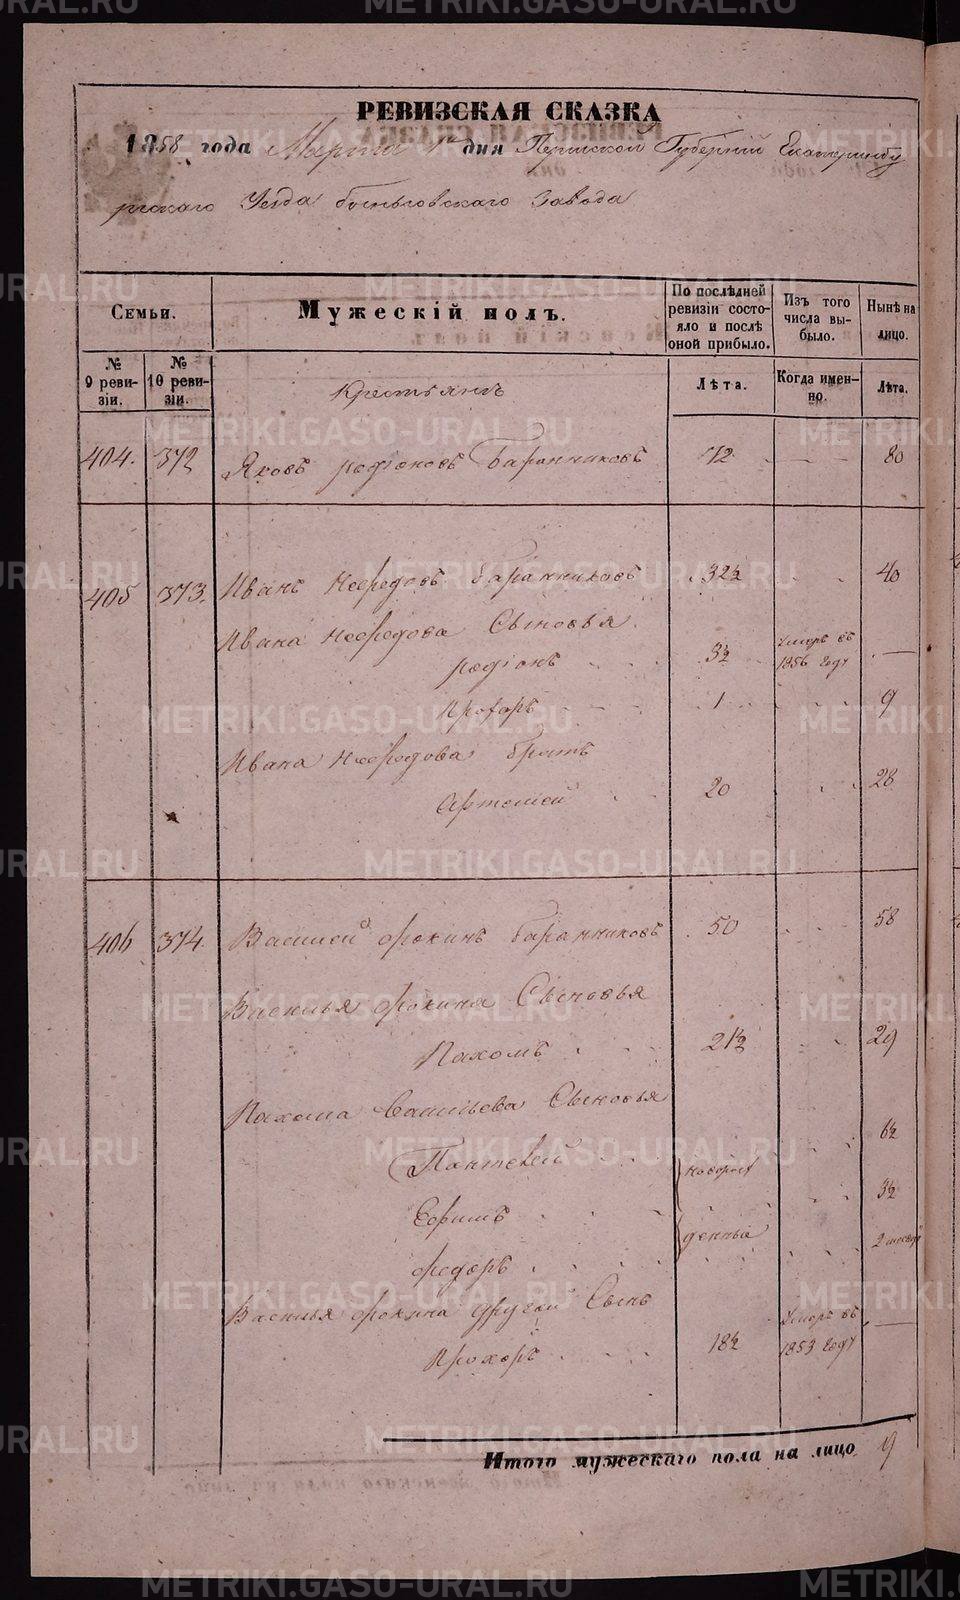 РЕВИЗСКАЯ СКАЗКА
1858 года Марта 1го дня Пермской Губерніи Екатеринбу
ргскаго Уезда Быньговскаго Завода
Семьи.
Мужескій полъ.
По послѣдней ревизіи состояло и послѣ оной прибыло.
Изъ того числа выбыло.
Нынѣ на лицо.
№ 9 ревизіи.
№ 10 ревизіи.
Крестьянъ
Лѣта.
Когда именно.
Лѣта.
404. 372 Яковъ родіоновъ Баранниковъ 72 80
405 373. Иванъ Нефедовъ баранниковъ 32½ 40
Ивана Нефедова Сыновья
родіонъ 3½ Умеръ въ 1856 году
1 9
Ивана Нефедова братъ
Артемей 20 28
406 374. Василей фокинъ баранниковъ 50 58
Василья фокина Сыновья
Пахомъ 21½ 29
Пахома Васильева Сыновья
Пантелей новорож 6½
Ефимъ 3½
денные
федоръ 2 месец
Василья фокина другой Сынъ
Прохоръ 18½ Умеръ въ 1853 году
Итого мужескаго пола на лицо 9
METRIKI.GASO-URAL.RU